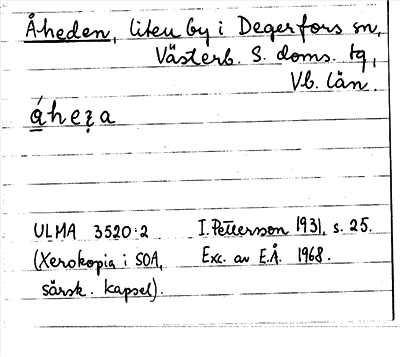 Åheden, liten by i Degerfors sn,
Västerb. S. doms. tg,
Vb. län.
áheza
ULMA 3520:2 I. Pettersson 1931, s. 25.
(Xerokopia i SOA, Exc. av E.Å. 1968.
särsk. kapsel).